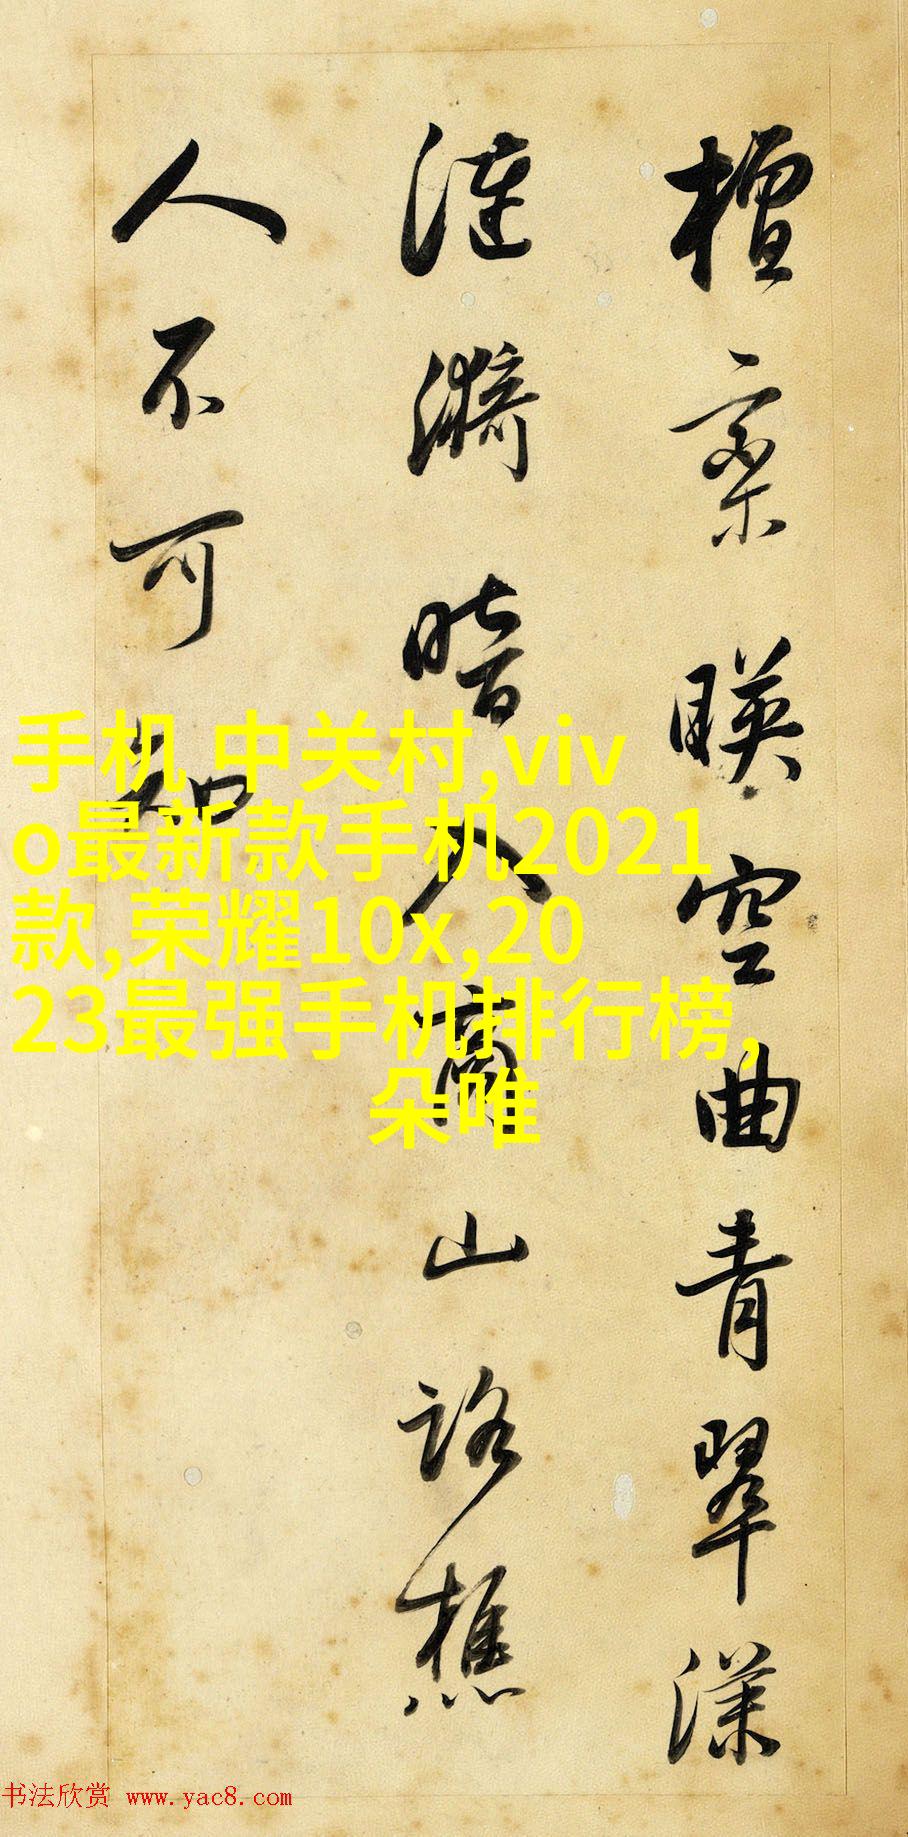 檀欒暎空曲青翠漾
漣漪暗入商山路樵
人不可知
手机 中关村,viv
o最新款手机2021
款,荣耀10x,20
23最强手机排行榜,
朵唯
书法欣赏 www.yac8.com